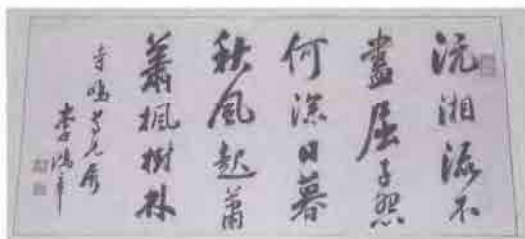 沅湘流不
盡屈子怨
何深日暮
秋風起蕭
蕭楓樹林
鳴尊兄屬
李鴻章